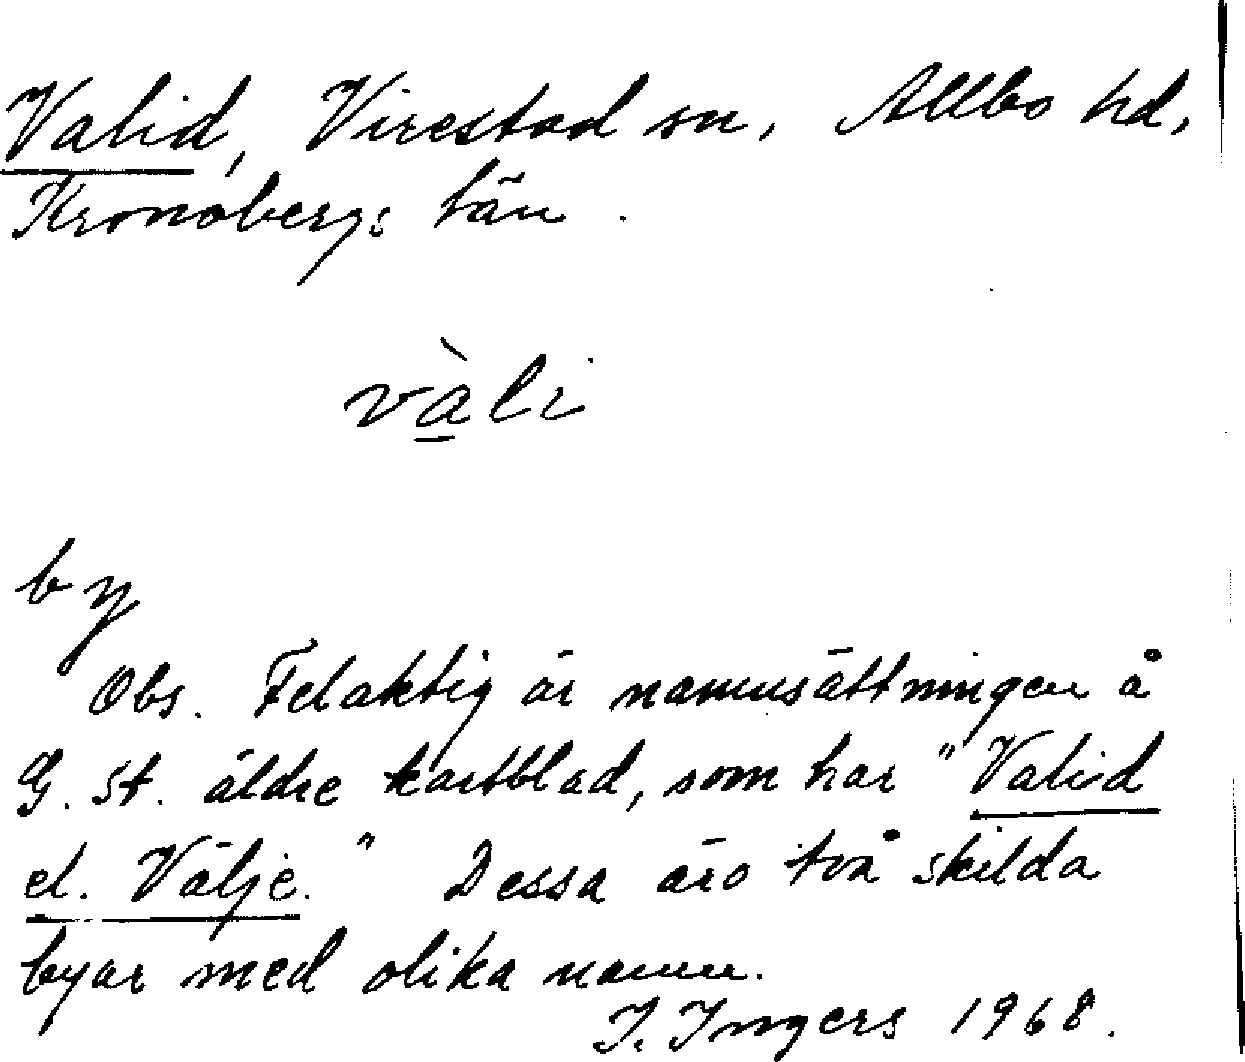 Valid, Virestad sn, Allbo hd,
Kronobergs län.
vàli
by
Obs. Felaktig är namnsättningen å
G. St. äldre kartblad, som har "Valid
el. Välje." Dessa äro två skilda
byar med olika namn.
I. Ingers 1968.